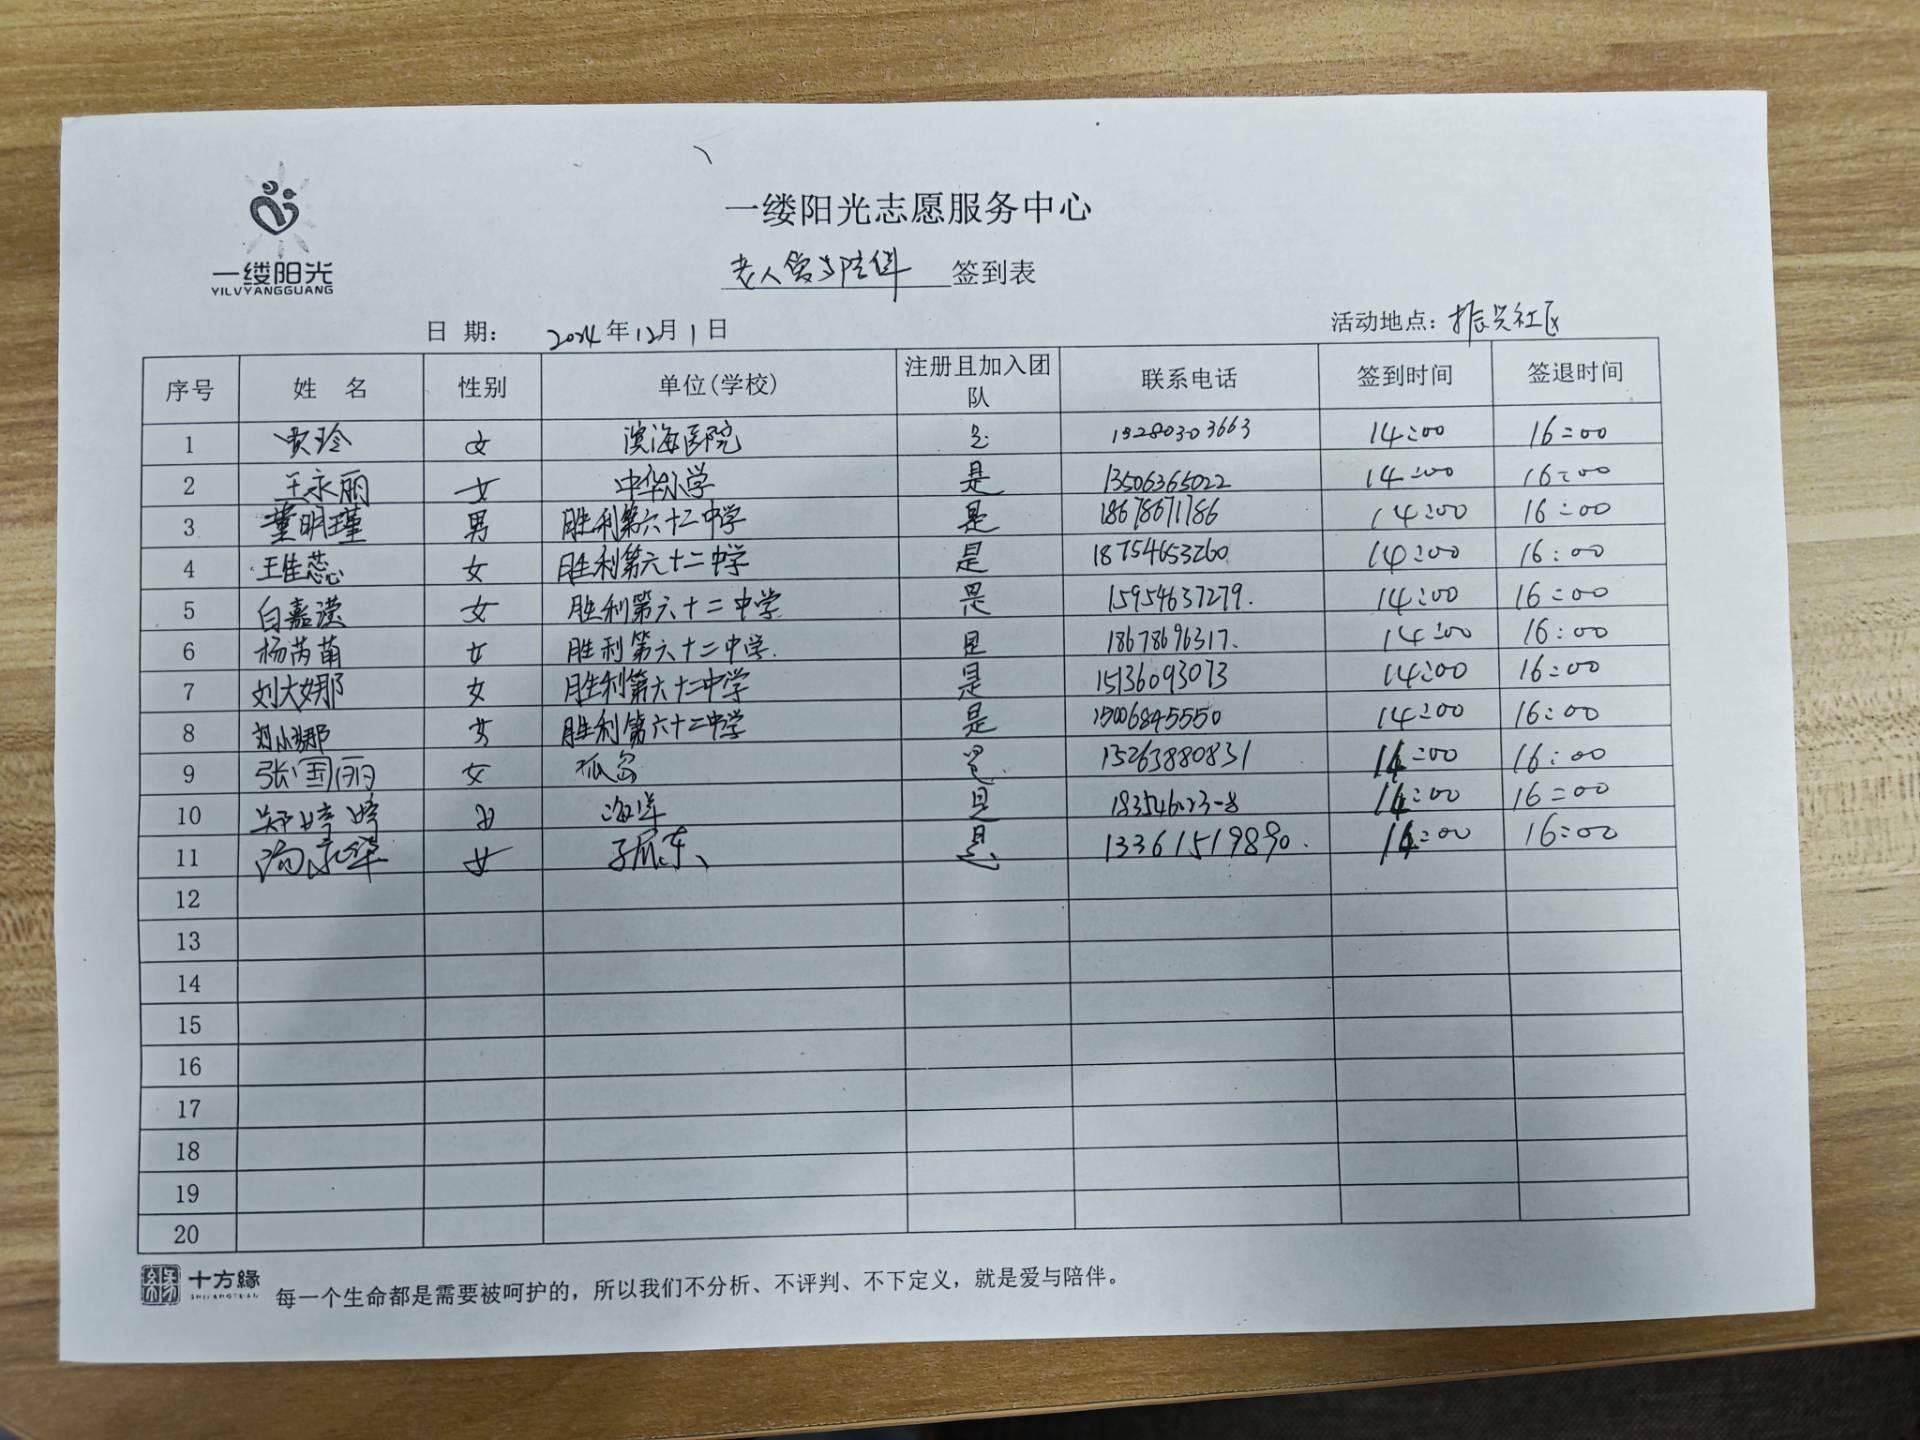 一缕阳光
YILVYANGGUANG
一缕阳光志愿服务中心
老人爱与陪伴 签到表
日 期： 2024年12月1日 活动地点：振兴社区
序号 姓 名 性别 单位(学校) 注册且加入团队 联系电话 签到时间 签退时间
1 贾玲 女 滨海医院 是 15280303663 14:00 16:00
2 王永丽 女 中华小学 是 13506365022 14:00 16:00
3 董明瑾 男 胜利第六十二中学 是 18678671786 14:00 16:00
4 王佳蕊 女 胜利第六十二中学 是 18754653260 14:00 16:00
5 白嘉滢 女 胜利第六十二中学 是 15954637279. 14:00 16:00
6 杨芮萌 女 胜利第六十二中学. 是 18678696317. 14:00 16:00
7 刘大娜 女 胜利第六十二中学 是 15136093073 14:00 16:00
8 刘小娜 女 胜利第六十二中学 是 15006845550 14:00 16:00
9 张国丽 女 孤岛 是 15263880831 14:00 16:00
10 郑婷婷 女 海洋 是 14:00 16:00
11 女 是 13361519890. 14:00 16:00
12
13
14
15
16
17
18
19
20
十方緣 每一个生命都是需要被呵护的，所以我们不分析、不评判、不下定义，就是爱与陪伴。